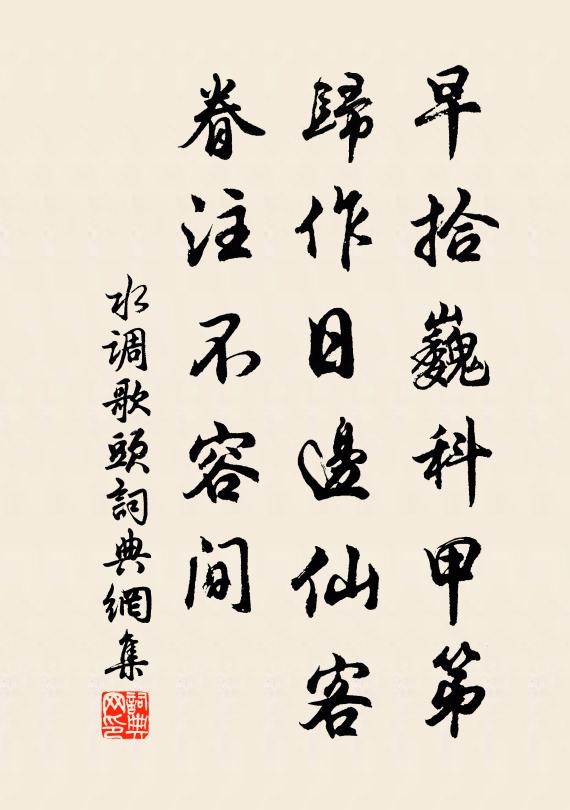 早拾巍科甲第
歸作日邊仙客
眷注不容間
水调歌頭詞典網集
詞典网印